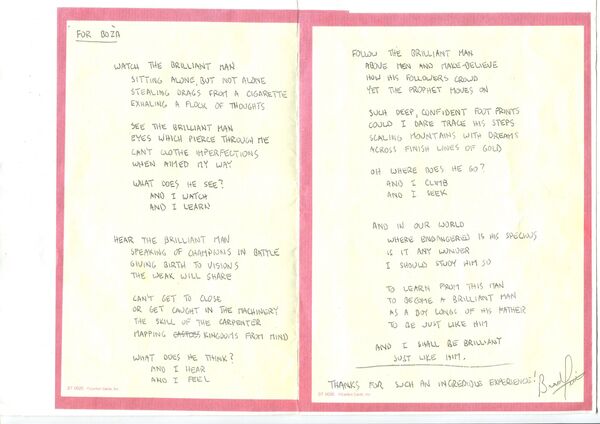 FOR BOZA
WATCH THE BRILLIANT MAN
SITTING ALONE, BUT NOT ALONE
STEALING DRAGS FROM A CIGARETTE
EXHALING A FLOCK OF THOUGHTS
SEE THE BRILLIANT MAN
EYES WHICH PIERCE THROUGH ME
CAN'T CLOTHE IMPERFECTIONS
WHEN AIMED MY WAY
WHAT DOES HE SEE?
AND I WATCH
AND I LEARN
HEAR THE BRILLIANT MAN
SPEAKING OF CHAMPIONS IN BATTLE
GIVING BIRTH TO VISIONS
THE WEAK WILL SHARE
CAN'T GET TO CLOSE
OR GET CAUGHT IN THE MACHINERY
THE SKILL OF THE CARPENTER
MAPPING KINGDOMS FROM MIND
WHAT DOES HE THINK?
AND I HEAR
AND I FEEL
FOLLOW THE BRILLIANT MAN
ABOVE MEN AND MAKE-BELIEVE
HOW HIS FOLLOWERS CROWD
YET THE PROPHET MOVES ON
SUCH DEEP, CONFIDENT FOOT PRINTS
COULD I DARE TRACE HIS STEPS
SCALING MOUNTAINS WITH DREAMS
ACROSS FINISH LINES OF GOLD
OH WHERE DOES HE GO?
AND I CLIMB
AND I SEEK
AND IN OUR WORLD
WHERE ENDANGERED IS HIS SPECIOUS
IS IT ANY WONDER
I SHOULD STUDY HIM SO
TO LEARN FROM THIS MAN
TO BECOME A BRILLIANT MAN
AS A BOY LONGS OF HIS FATHER
TO BE JUST LIKE HIM
AND I SHALL BE BRILLIANT
JUST LIKE HIM.
THANKS FOR SUCH AN INCREDIBLE EXPERIENCE!